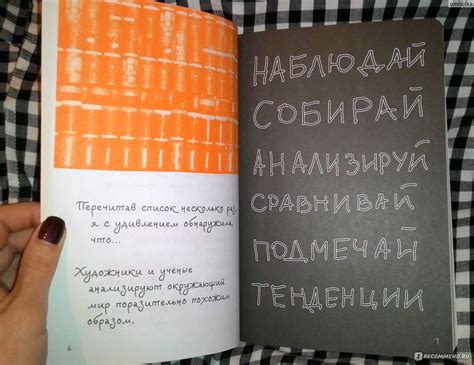 umbolka
Перечитав список несколько раз,
я с удивлением обнаружила,
что...
Художники и учёные
анализируют окружающий
мир поразительно похожим
образом.
6
НАБЛЮДАЙ
СОБИРАЙ
АНАЛИЗИРУЙ
СРАВНИВАЙ
ПОДМЕЧАЙ
ТЕНДЕНЦИИ
7
RECOMMEND.RU